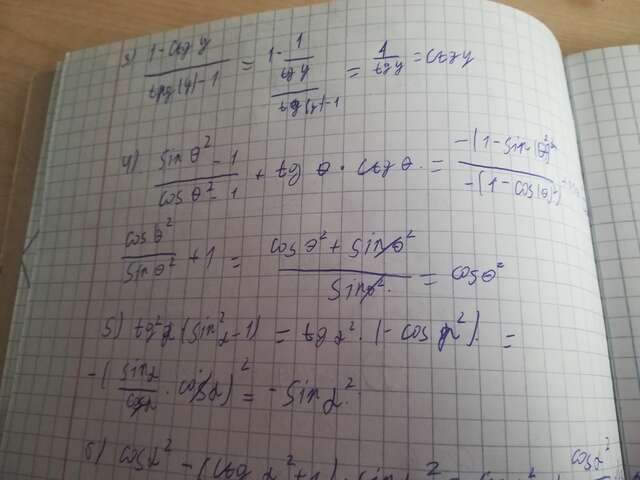 3) (1 - ctg y)/(tg(y) - 1) = (1 - 1/(tg y))/(tg(y) - 1) = 1/(tg y) = ctg y
4) (sin θ² - 1)/(cos θ² - 1) + tg θ · ctg θ = (-(1 - sin(θ)²))/(-(1 - cos(θ)²))
(cos θ²)/(sin θ²) + 1 = (cos θ² + sin θ²)/(sin θ²) = cos θ²
5) tg²α (sin²α - 1) = tg α² · (- cos α²) =
-((sin α)/(cos α) · cos α)² = - sin α²
6) cos α² - (ctg α² + 1) · sin α² = cos α²